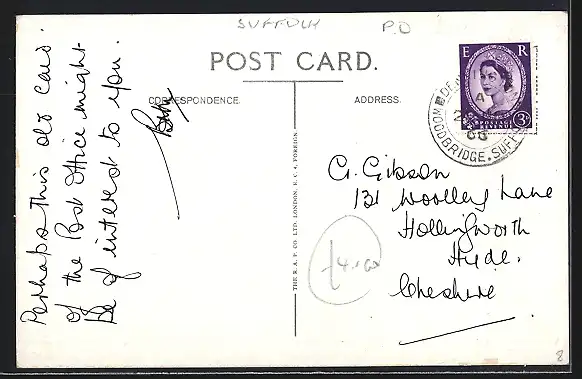 SUFFOLK P.O
POST CARD.
CORRESPONDENCE.
ADDRESS.
Perhaps this old card
of the Post Office might
be of interest to you.
E R
POSTAGE REVENUE
3D
WOODBRIDGE. SUFFOLK
G. Gibson
131 Woolley Lane
Hollingworth
Hyde.
Cheshire
THE R.A.P. CO. LTD. LONDON. E.C.4. FOREIGN
£4.00
8